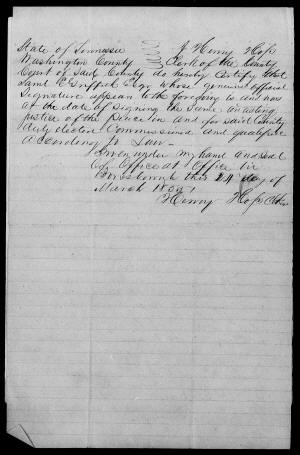 State of Tennessee I Henry Hoss
Washington County Clerk of the County
Court of Said County do hereby Certify that
Saml E Griffith Esqr whose genuine official
Signature appears to the foregoing is and was
at the date of signing the Same an acting
justice of the Peace in and for said County
duly elected Commissioned and qualified
according to Law
Given under my hand and seal
of Office at Office in
Jonesborough this 24 day of
March
Henry Hoss Clerk